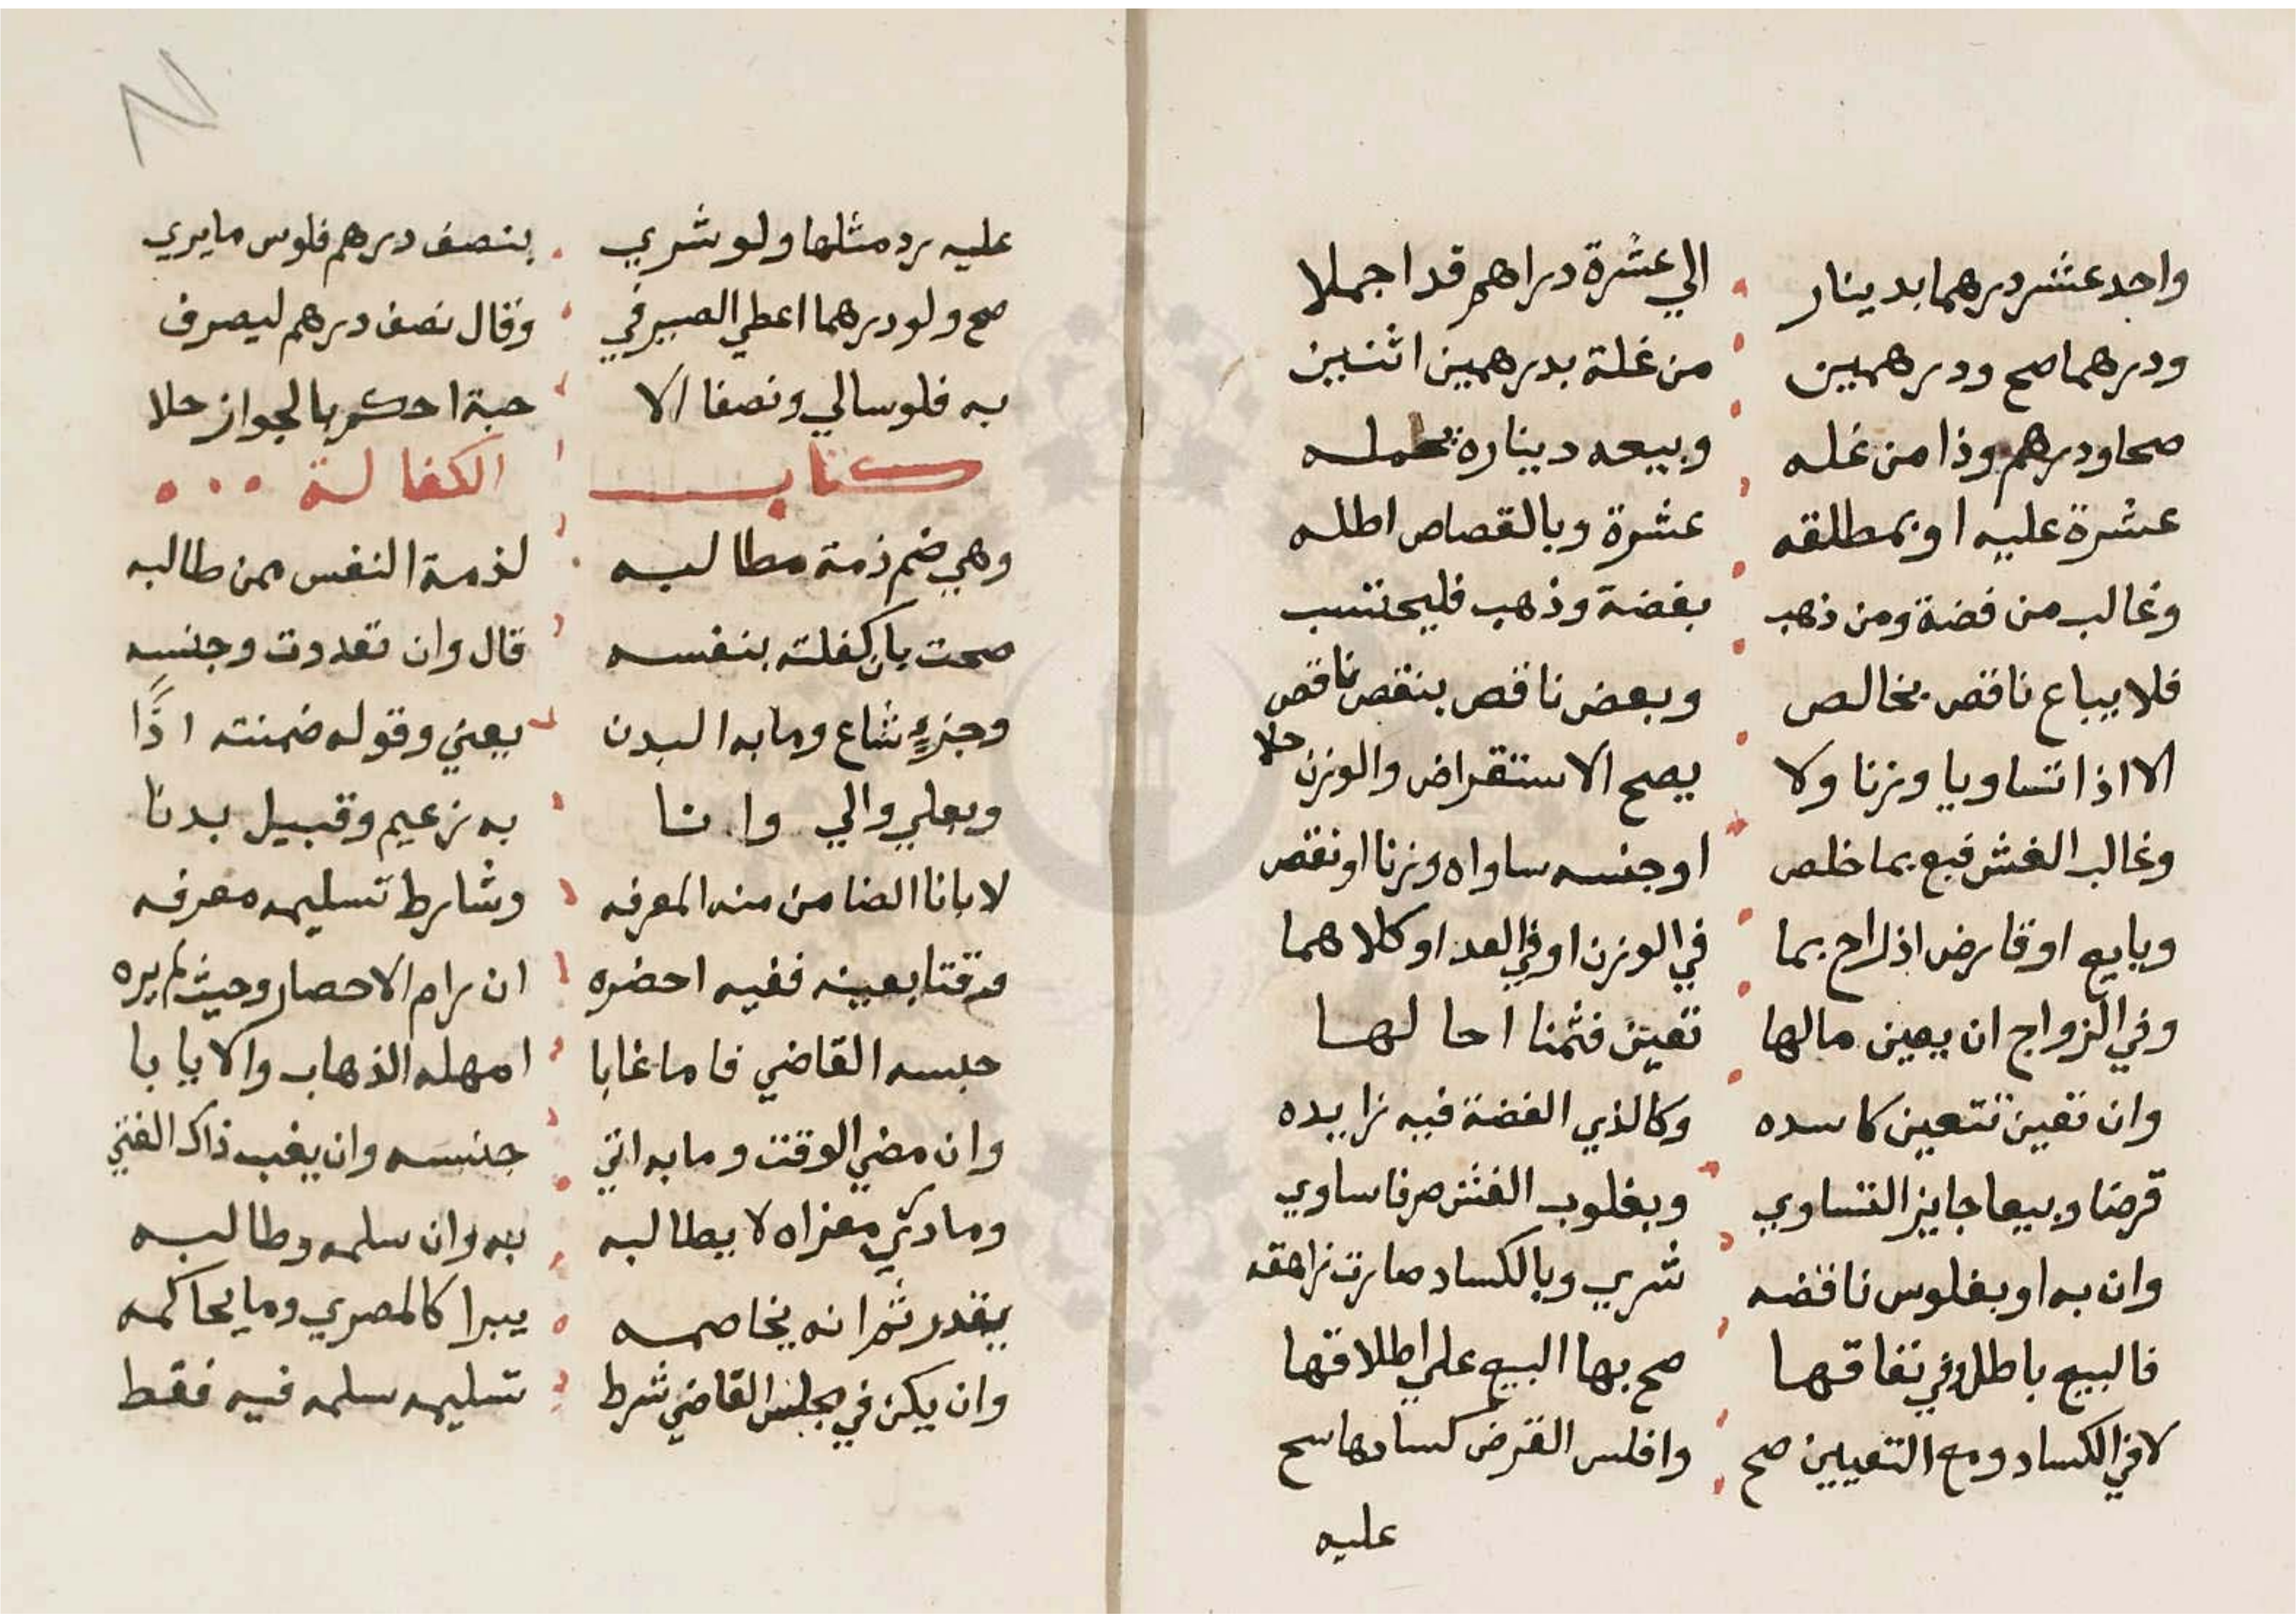 واحد عشر درهما بدينار الي عشرة دراهم قد اجملا
ودرهما صح ودرهمين من غلة بدرهمين اثنين
صحا ودرهم وذا من غله وبيعه ديناره
عشرة عليه او بمطلقه عشرة وبالقصاص اطله
وغالب من فضة ومن ذهب بفضة وذهب فليحتسب
فلا يباع ناقص بخالص وبعض ناقص بنقص ناقص
الا اذا تساويا وزنا ولا يصح الاستقراض والوزن حلا
وغالب الغش فبع بما خلص او جنسه ساواه وزنا او نقص
وبايع او قارض اذ راج بما في الوزن او في العد او كلاهما
وفي الرواج ان يعين مالها تعين فثمنا احالها
وان تعين تتعين كاسده وكالذي الفضة فيه زايده
قرضا وبيعا جايز التساوي وبغلوب الغش صرفا ساوي
وان به او بفلوس نافضه شري وبالكساد صارت زاهقه
فالبيع باطل وفي نفاقها صح بها البيع علي اطلاقها
لا في الكساد ومع التعيين صح وافلس القرض كسادها سح
عليه
عليه رد مثلها ولو شري بنصف درهم فلوس ما يري
صح ولو درهما اعطي الصيرفي وقال نصف درهم ليصرف
به فلوسا لي ونصفا الا حبة احكم بالجواز حلا
كتاب الكفالة
وهي ضم ذمة مطالبه لذمة النفس ممن طالبه
صحت بان كفلته بنفسه قال وان تعددت وجنسه
وجزء شاع وما به البدن يعني وقوله ضمنته اذا
وبعلي والي وانا به زعيم وقبيل بدنا
لا بانا الضامن منه المعرفه وشارط تسليمه معرفه
وقتا بعينه ففيه احضره ان رام الاحصار وحيث لم يره
حبسه القاضي فاما غابا امهله الذهاب والايابا
وان مضي الوقت وما به اتي حبسه وان يغب ذاك الفتي
وما دري مغزاه لا يطالبه به وان سلمه وطالبه
يقدر ثم انه يخاصمه يبرا كالمصري وما يحاكمه
وان يكن في مجلس القاضي شرط تسليمه سلمه فيه فقط